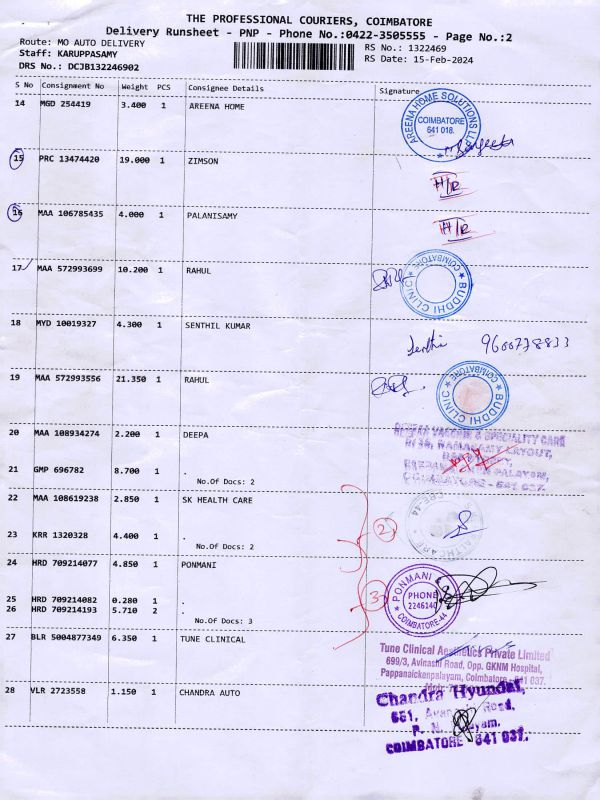 THE PROFESSIONAL COURIERS, COIMBATORE
Delivery Runsheet - PNP - Phone No.:0422-3505555 - Page No.:2
Route: MO AUTO DELIVERY
RS No.: 1322469
Staff: KARUPPASAMY
RS Date: 15-Feb-2024
DRS No.: DCJB132246902
S No Consignment No Weight PCS Consignee Details Signature
14 MGD 254419 3.400 1 AREENA HOME
AREENA HOME SOLUTIONS LLP
COIMBATORE
641 018.
15 PRC 13474420 19.000 1 ZIMSON
H/R
16 MAA 106785435 4.000 1 PALANISAMY
H/R
17 MAA 572993699 10.200 1 RAHUL
BUDDHI CLINIC COIMBATORE
18 MYD 10019327 4.300 1 SENTHIL KUMAR
9600778833
19 MAA 572993556 21.350 1 RAHUL
BUDDHI CLINIC COIMBATORE
20 MAA 108934274 2.200 1 DEEPA
VACCINE & SPECIALITY CARE
RAMASAMY LAYOUT,
COIMBATORE - 641 037.
21 GMP 696782 8.700 1 .
No.Of Docs: 2
22 MAA 108619238 2.850 1 SK HEALTH CARE
2
23 KRR 1320328 4.400 1 .
No.Of Docs: 2
24 HRD 709214077 4.850 1 PONMANI
3
PONMANI
PHONE
2246140
COIMBATORE-44
25 HRD 709214082 0.280 1 .
26 HRD 709214193 5.710 2 .
No.Of Docs: 3
27 BLR 5004877349 6.350 1 TUNE CLINICAL
Tune Clinical Aesthetics Private Limited
699/3, Avinashi Road, Opp. GKNM Hospital,
Pappanaickenpalayam, Coimbatore - 641 037.
28 VLR 2723558 1.150 1 CHANDRA AUTO
Chandra Hyundai,
651, Road,
COIMBATORE 641 037.